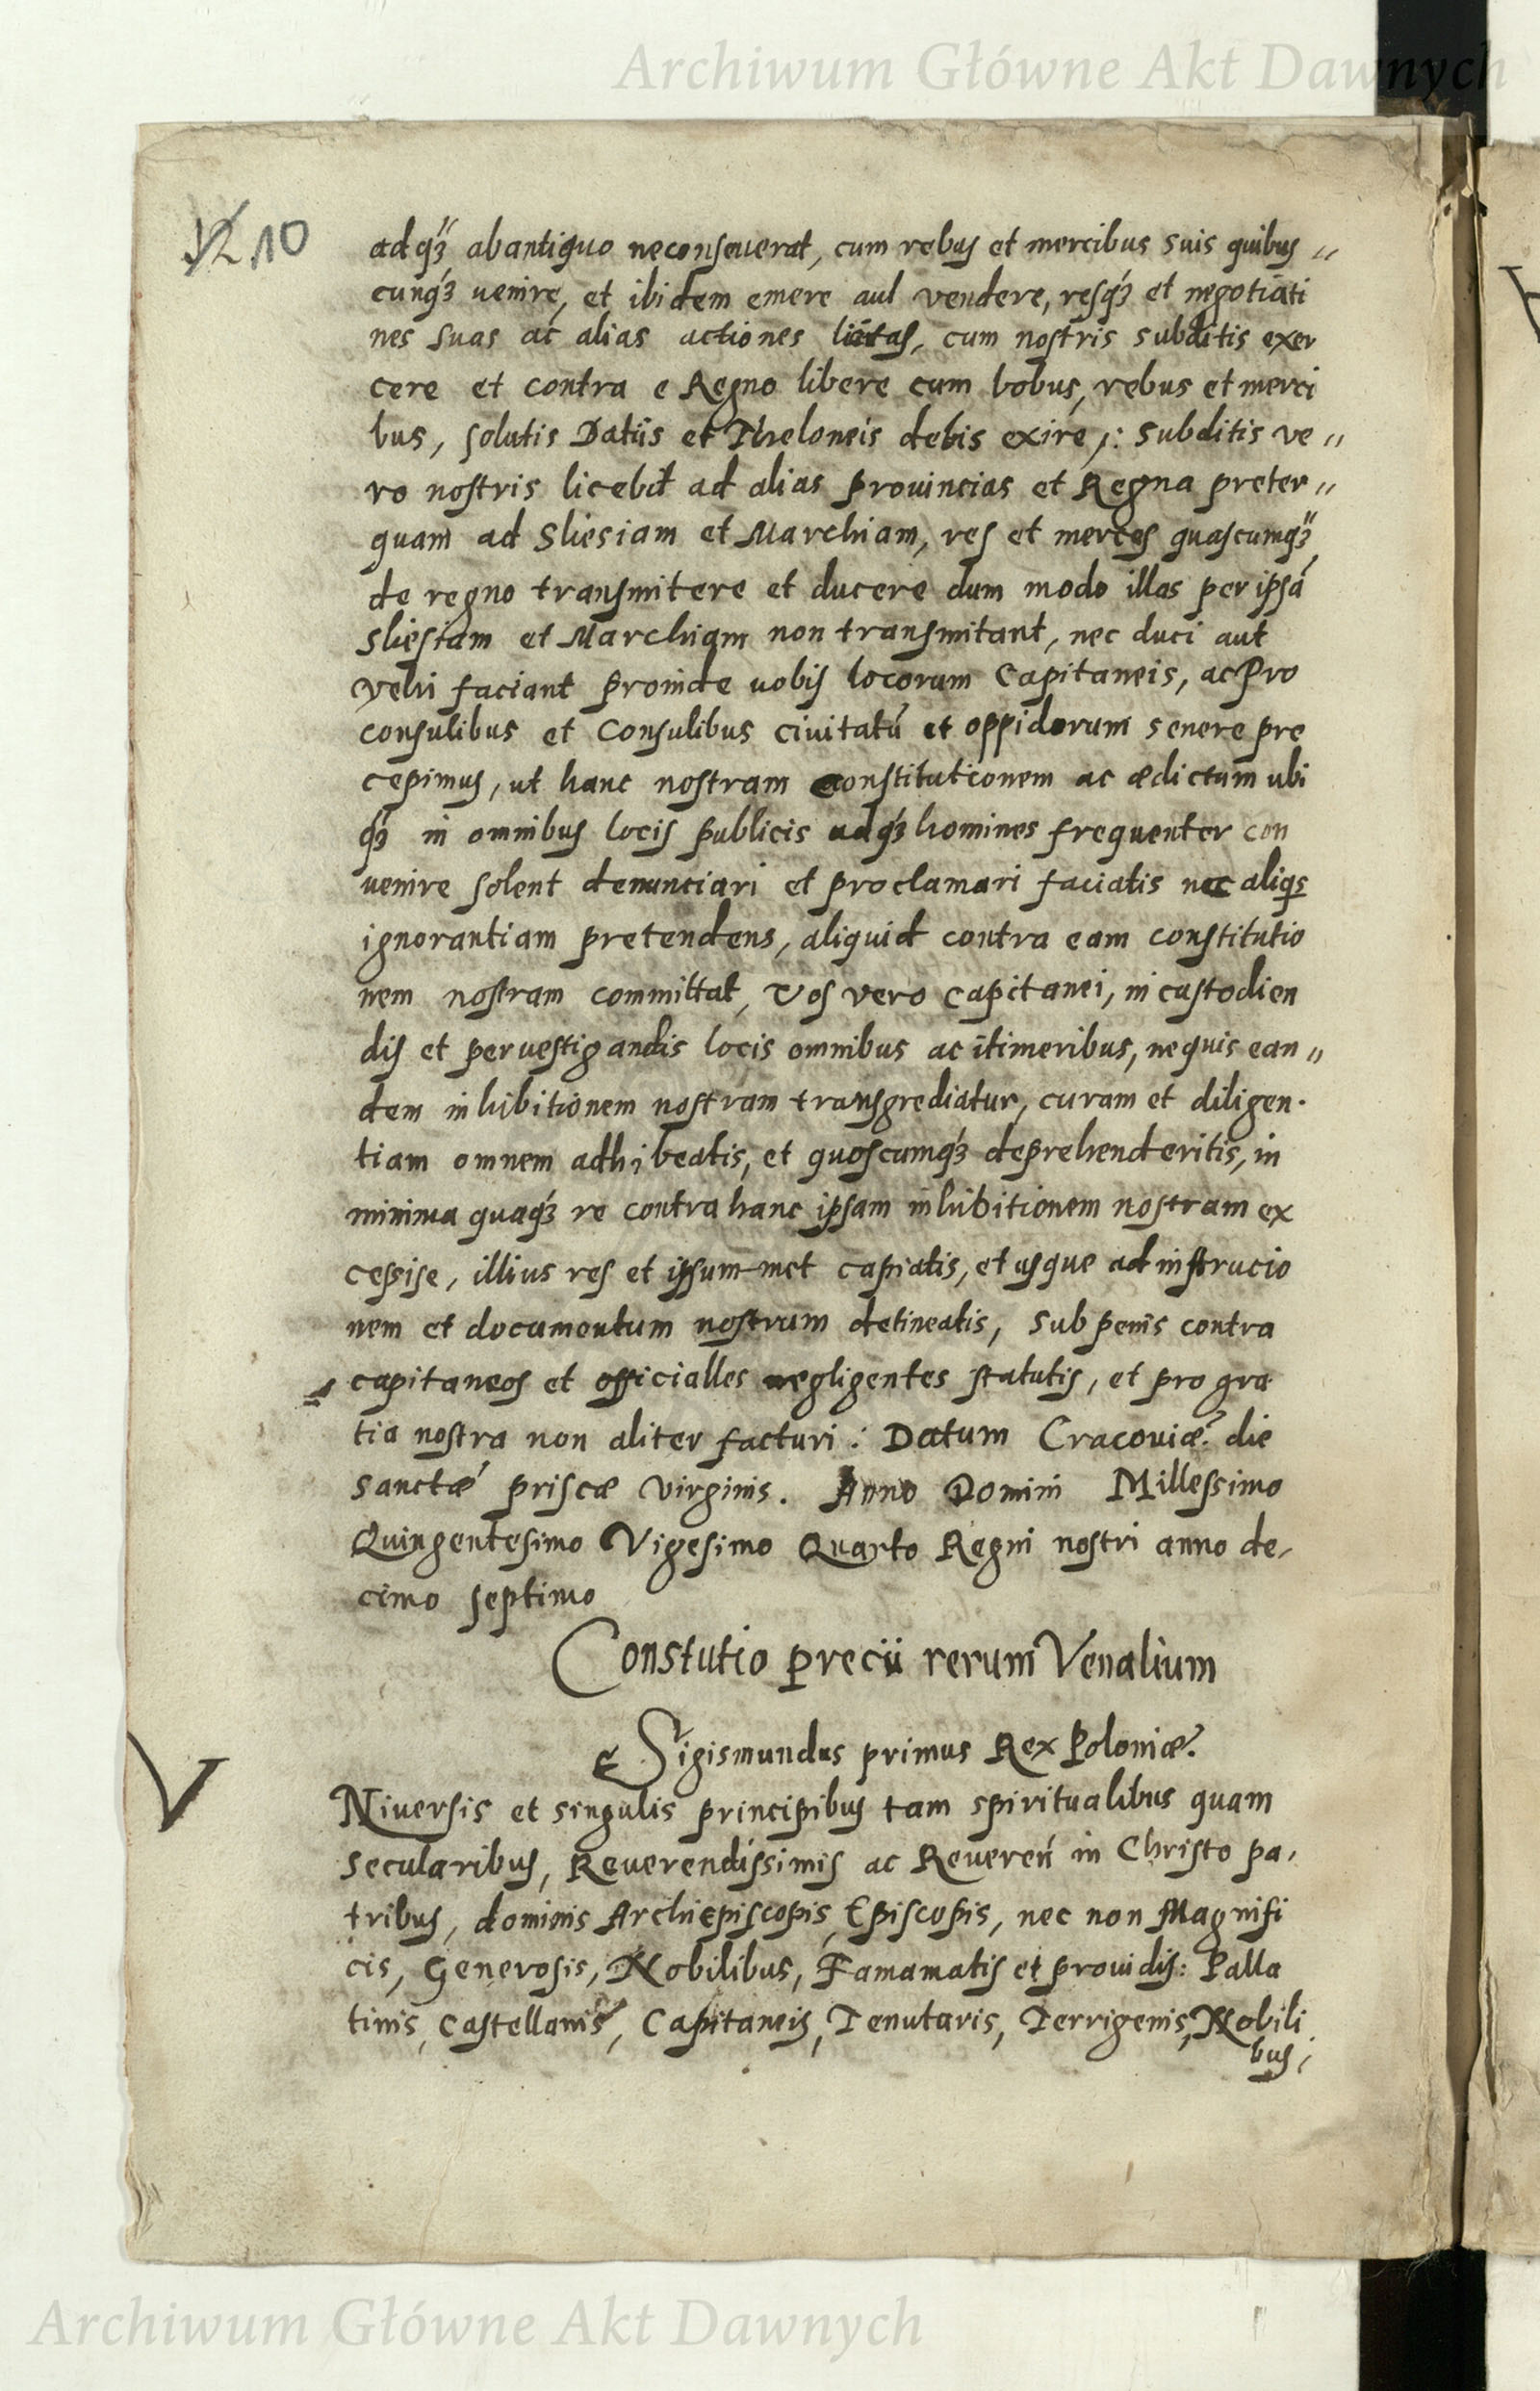 Archiwum Główne Akt Dawnych
10
adq́ꝫ abantiquo neconseuerat, cum rebus et mercibus suis quibus„
cunq́ꝫ uenire, et ibidem emere aut vendere, resq́ꝫ et negotiati
nes suas ac alias actiones licitas, cum nostris subditis exer
cere et contra e Regno libere cum bobus, rebus et merci
bus, solutis Datiis et Theloneis debis exire,: subditis ve„
ro nostris licebit ad alias prouincias et Regna preter„
quam ad Sliesiam et Marchiam, res et merces quascumq́ꝫ
de regno transmitere et ducere dum modo illas per ipsā
Sliesiam et Marchiam non transmitant, nec duci aut
vehi faciant proinde uobis locorum Capitaneis, ac Pro
consulibus et Consulibus ciuitatū et oppidorum senere pre
cepimus, ut hanc nostram constitutionem ac ædictum ubi
q́ꝫ in omnibus locis publicis adq́ꝫ homines frequenter con
uenire solent denunciari et proclamari faciatis nec aliqs
ignorantiam pretendens, aliquid contra eam constitutio
nem nostram committat, Vos vero capitanei, in custodien
dis et peruestigandis locis omnibus ac itimeribus, nequis ean„
dem inhibitionem nostram transgrediatur, curam et diligen·
tiam omnem adhibeatis, et quoscumq́ꝫ deprehenderitis, in
minima quaq́ꝫ re contra hanc ipsam inhibitionem nostram ex
cessise, illius res et ipsum met capiatis, et usque ad instrucio
nem et documentum nostrum detineatis, sub penis contra
capitaneos et officialles negligentes statutis, et pro gra
tia nostra non aliter facturi: Datum Cracouiæ. die
sanctæ priscæ virginis. Anno Domini Millessimo
Quingentesimo Vigesimo Quarto Regni nostri anno de,
cimo septimo
Constutio precii rerum Venalium
Sigismundus primus Rex Poloniæ.
V
Niuersis et singulis principibus tam spiritualibus quam
secularibus, Reuerendissimis ac Reuereń in Christo pa,
tribus, dominis Archiepiscopis, Episcopis, nec non Magnifi
cis, Generosis, Nobilibus, Famamatis et prouidis: Palla
tinis, castellanis, Capitaneis, Tenutaris, Terrigenis, Nobili
bus,
Archiwum Główne Akt Dawnych